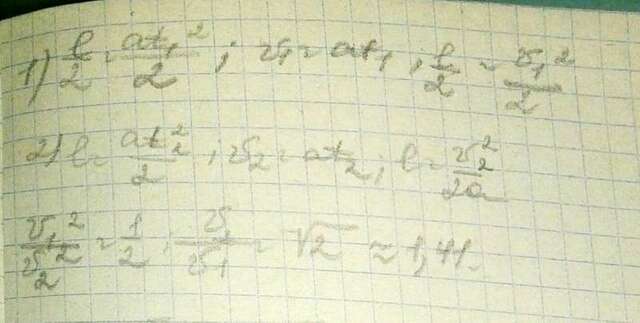 1) l/2 = at₁²/2 ; v₁ = at₁ ; l/2 = v₁²/2
2) l = at₂²/2 ; v₂ = at₂ ; l = v₂²/2a
v₁²/v₂² = 1/2 ; v/v₁ = √2 ≈ 1,41.